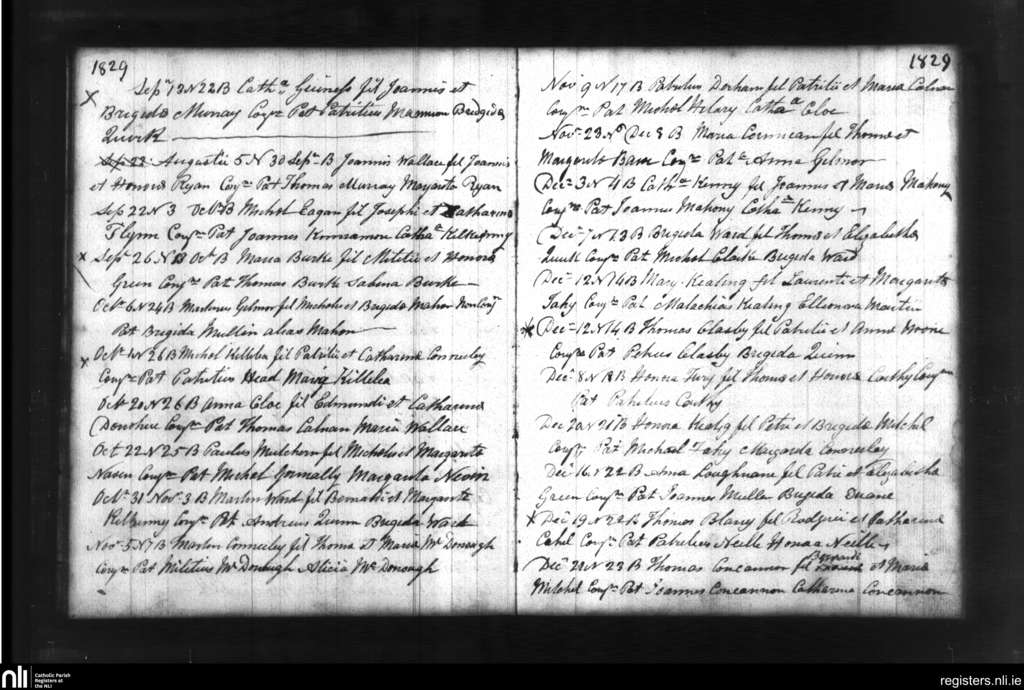 1829
Sepr 13 N 22 B Catha Guiness fil Joannis et
Brigida Murray Conjm Pat Patritius Mannion Bridgida
Quirk
Augustii 5 N 30 Sepr B Joannis Wallace fil Joannis
et Honora Ryan Conjm Pat Thomas Murray Margarita Ryan
Sep 22 N 3 Octr B Michol Eagan fil Josephi et Catharina
Flynn Conjm Pat Joannes Kinnamore Catha Kilkenny
Sepr 26 N Octr B Maria Burke fil Militii et Honora
Green Conjm Pat Thomas Burke Sabina Burke
Octr 6 N 24 B Martinus Gilmor fil Micholis et Brigida Mahon non Conj
Pat Brigida Mullin alias Mahon
Octr N 26 B Michol Killilea fil Patritii et Catharina Conneeley
Conjm Pat Patritius Head Maria Killilea
Octr 20 N 26 B Anna Cloe fil Edmundi et Catharina
Donohue Conjm Pat Thomas Calnan Maria Wallace
Oct 22 N 25 B Paulus Mulchern fil Micholis et Margarita
Conjm Pat Michol Margarita
Octr 31 Novr 3 B Martin Ward fil Bernardi et Margarita
Kilkenny Conjm Pat Andreus Quinn Brigida Ward
Novr 5 N 7 B Martin Conneeley fil Thoma et Maria McDonough
Conjm Pat Militius McDonough Alicia McDonough
1829
Novr 9 N 17 B Patritius Derham fil Patritii et Maria Calnan
Conjm Pat Michol Hilary Catha Cloe
Novr 23 N Decr 8 B Maria Cormican fil Thoma et
Margarita Conjm Pat Anna Gilmor
Decr 3 N 4 B Catha Kenny fil Joannis et Maria Mahony
Conjm Pat Joannes Mahony Catha Kenny
Decr 7 N 13 B Brigida Ward fil Thoma et Elizabetha
Quirk Conjm Pat Michol Clarke Brigida Ward
Decr 12 N 16 B Mary Keating fil Laurentii et Margarita
Fahy Conjm Pat Malachias Keating Elleonora Martin
Decr 12 N 14 B Thomas Clasby fil Patritii et Anna
Conjm Pat Petrus Clasby Brigida Quinn
Decr 8 N 18 B Honora fil Thoma et Honora Conjm
Pat Patritius
Decr 20 N 21 B Honora fil Petri et Brigida Mitchel
Conjm Pat Michael Fahy Margarita Conneeley
Decr 16 N 22 B Anna Loughnane fil Patrii et Elizabetha
Green Conjm Pat Joannes Mullin Brigida Duane
Decr 19 N 22 B Thomas fil Rodgerii et Catharina
Conjm Pat Patritius Neille Honora Neille
Bernardi
Decr 21 N 23 B Thomas Concannon fil et Maria
Mitchel Conjm Pat Joannes Concannon Catharina Concannon
nli
Catholic Parish
Registers at
the NLI
registers.nli.ie